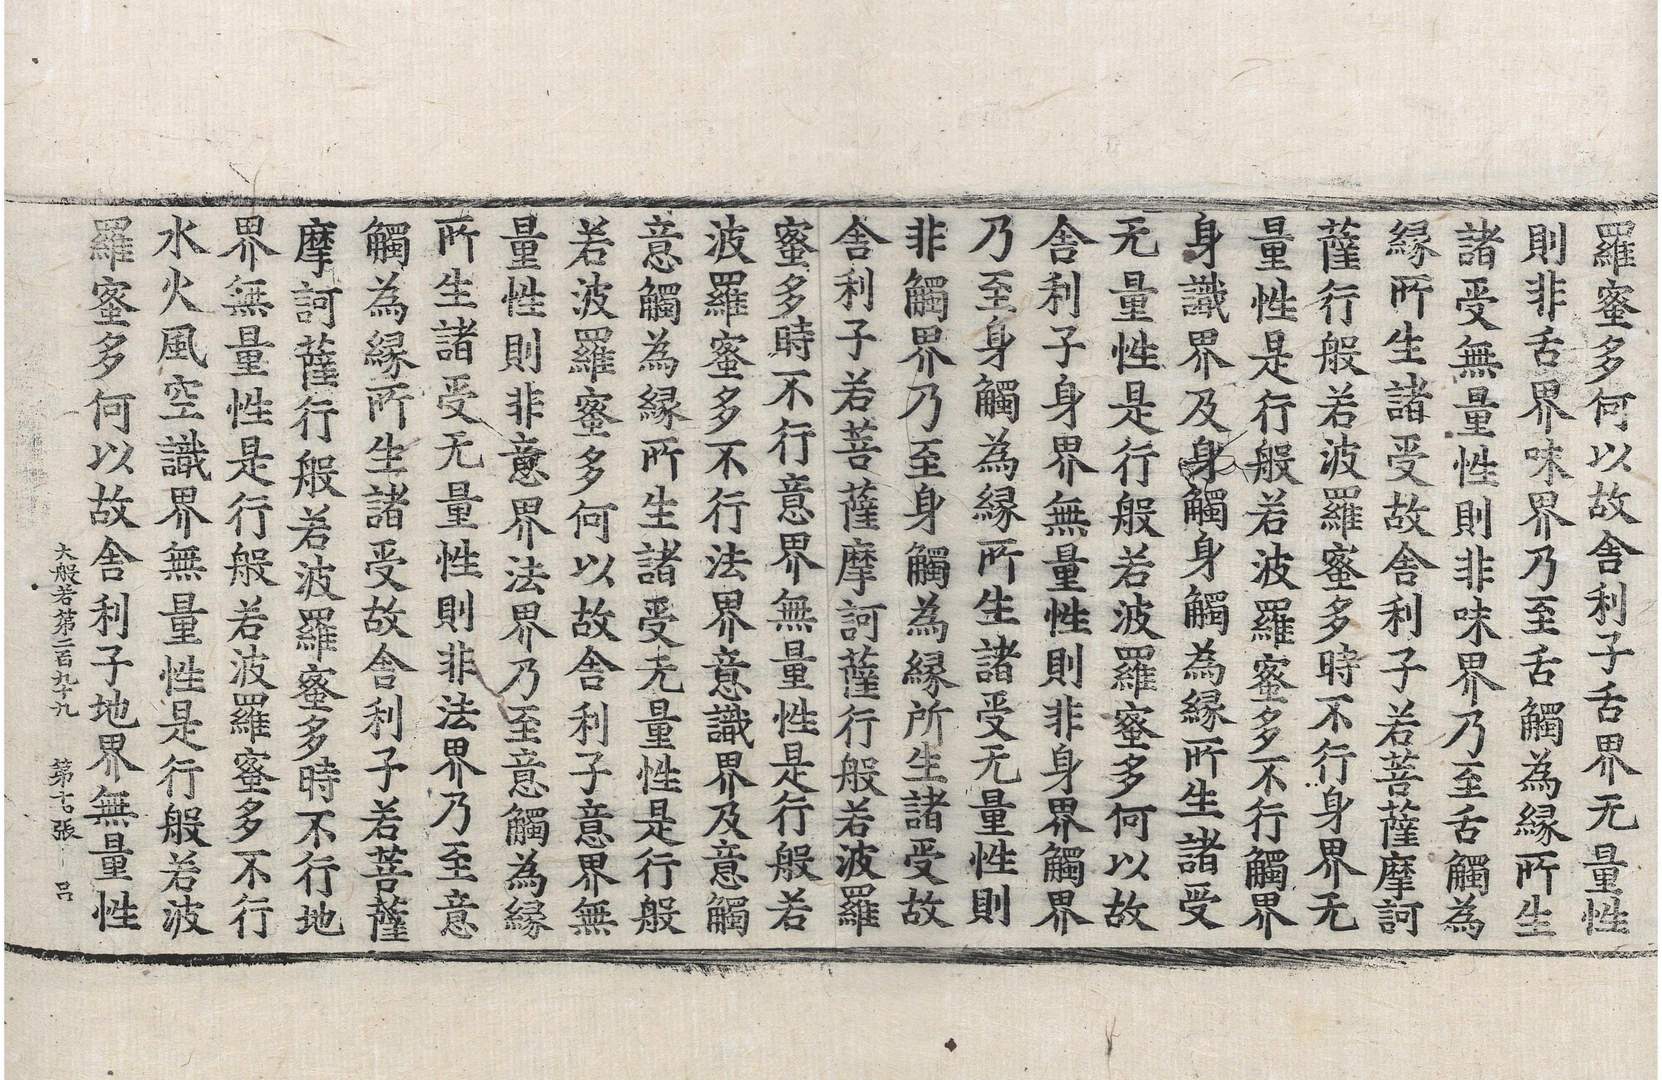 羅蜜多何以故舍利子舌界无量性
則非舌界味界乃至舌觸為緣所生
諸受無量性則非味界乃至舌觸為
緣所生諸受故舍利子若菩薩摩訶
薩行般若波羅蜜多時不行身界无
量性是行般若波羅蜜多不行觸界
身識界及身觸身觸為緣所生諸受
无量性是行般若波羅蜜多何以故
舍利子身界無量性則非身界觸界
乃至身觸為緣所生諸受无量性則
非觸界乃至身觸為緣所生諸受故
舍利子若菩薩摩訶薩行般若波羅
蜜多時不行意界無量性是行般若
波羅蜜多不行法界意識界及意觸
意觸為緣所生諸受无量性是行般
若波羅蜜多何以故舍利子意界無
量性則非意界法界乃至意觸為緣
所生諸受无量性則非法界乃至意
觸為緣所生諸受故舍利子若菩薩
摩訶薩行般若波羅蜜多時不行地
界無量性是行般若波羅蜜多不行
水火風空識界無量性是行般若波
羅蜜多何以故舍利子地界無量性
大般若第二百九十九 第十七張 呂